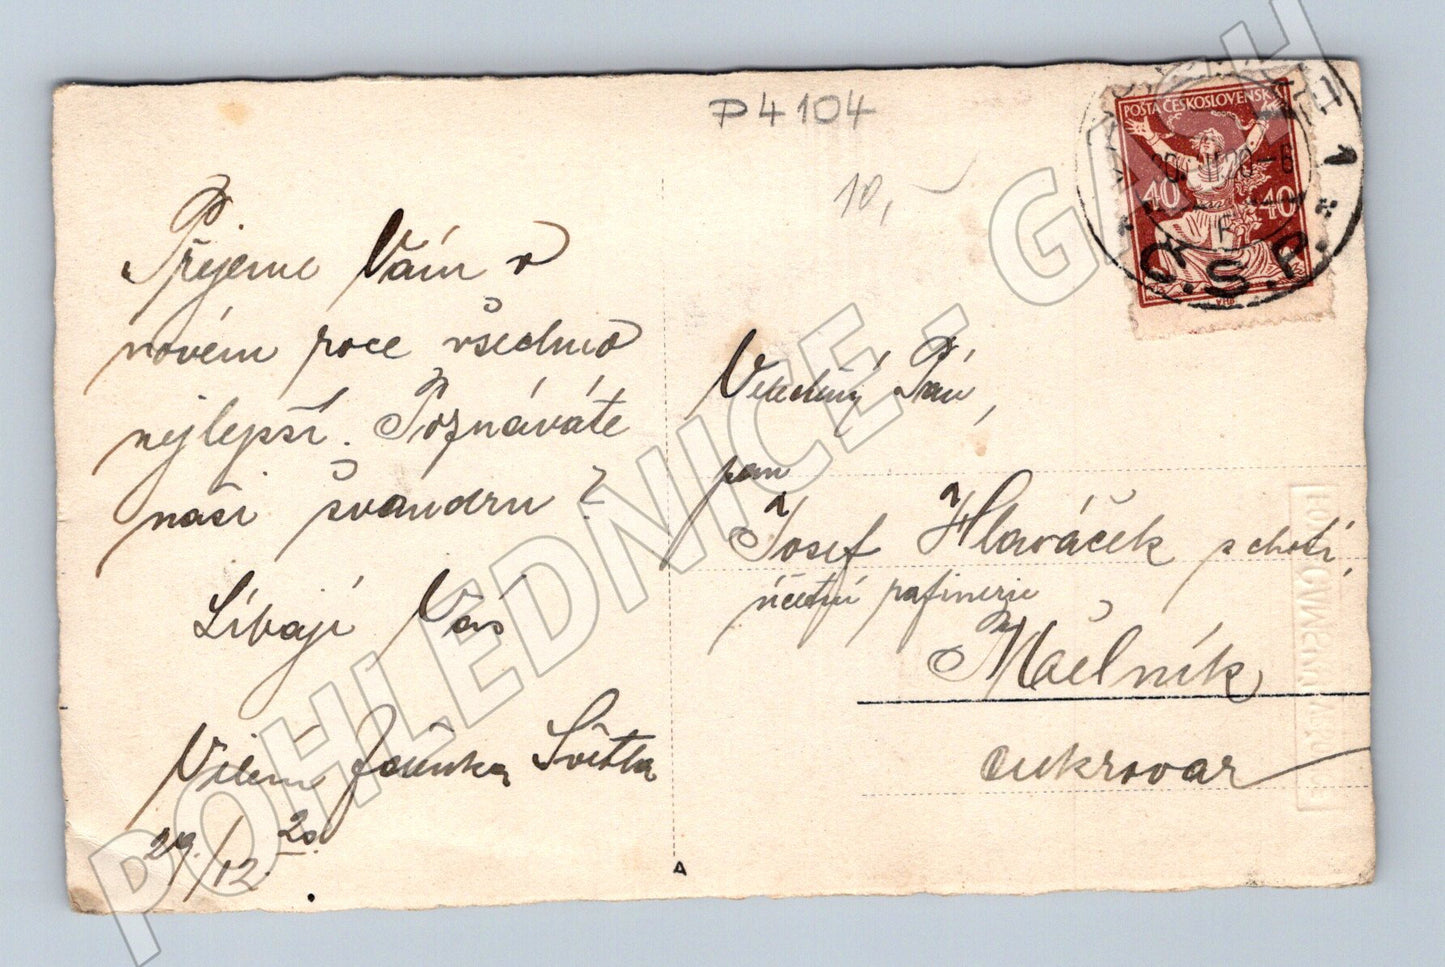 P4104
10,-
POŠTA ČESKOSLOVENSKÁ
40 40
1
Č.S.P.
Přejeme Vám v
novém roce všechno
nejlepší. Poznáváte
naši švandru?
Líbají Vás
Vilém Jarunka Světla
29./12. 20.
Veleděný Pán,
pan
Josef Hlaváček s chotí,
účetní rafinerie
Mělník
cukrovar
A
POHLEDNICE - GASH